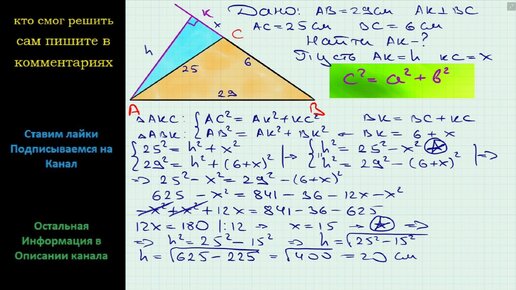 кто смог решить
сам пишите в
комментариях
Ставим лайки
Подписываемся на
Канал
Остальная
Информация в
Описании канала
Дано: AB=29см AK⊥BC
AC=25см BC=6см
Найти AK-?
Пусть AK=h KC=x
c²=a²+b²
K
x
C
h
25
6
29
A
B
ΔAKC: {AC²=AK²+KC² BK=BC+KC
ΔABK: {AB²=AK²+BK² ← BK=6+x
{25²=h²+x² |→ {h²=25²-x² (*)
{29²=h²+(6+x)² |→ {h²=29²-(6+x)² |⇒
⇒ 25²-x²=29²-(6+x)²
625-x²=841-36-12x-x²
-x²+x²+12x=841-36-625
12x=180 |:12 → x=15 → (*) ⇒
⇒ h²=25²-15² ⇒ h=√25²-15²
h=√625-225=√400=20см